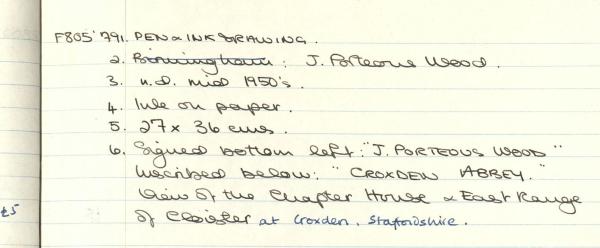 F805'791. PEN & INK DRAWING.
2. Birmingham: J. Porteous Wood.
3. n.d. mid 1950's.
4. Ink on paper.
5. 27 x 36 cms.
6. Signed bottom left: "J. PORTEOUS WOOD"
Inscribed below: "CROXDEN ABBEY."
View of the Chapter House & East Range
£5 of Cloister at Croxden, Staffordshire.